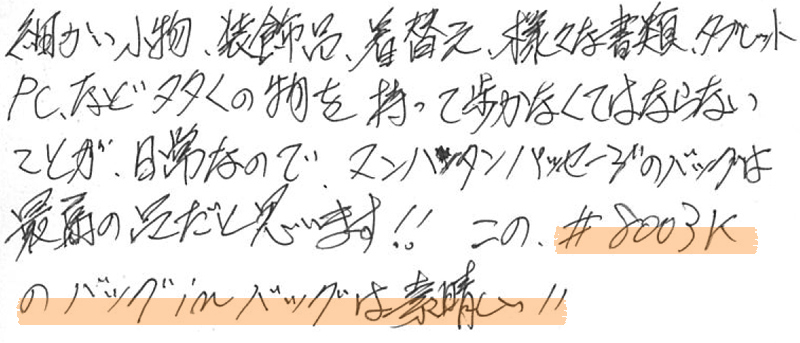 細かい小物、装飾品、着替え、様々な書類、タブレット
PC、など多くの物を持って歩かなくてはならない
ことが、日常なので、マンハッタンパッセージのバッグは
最高の品だと思います!! この、#8003K
のバッグinバッグは素晴しい!!